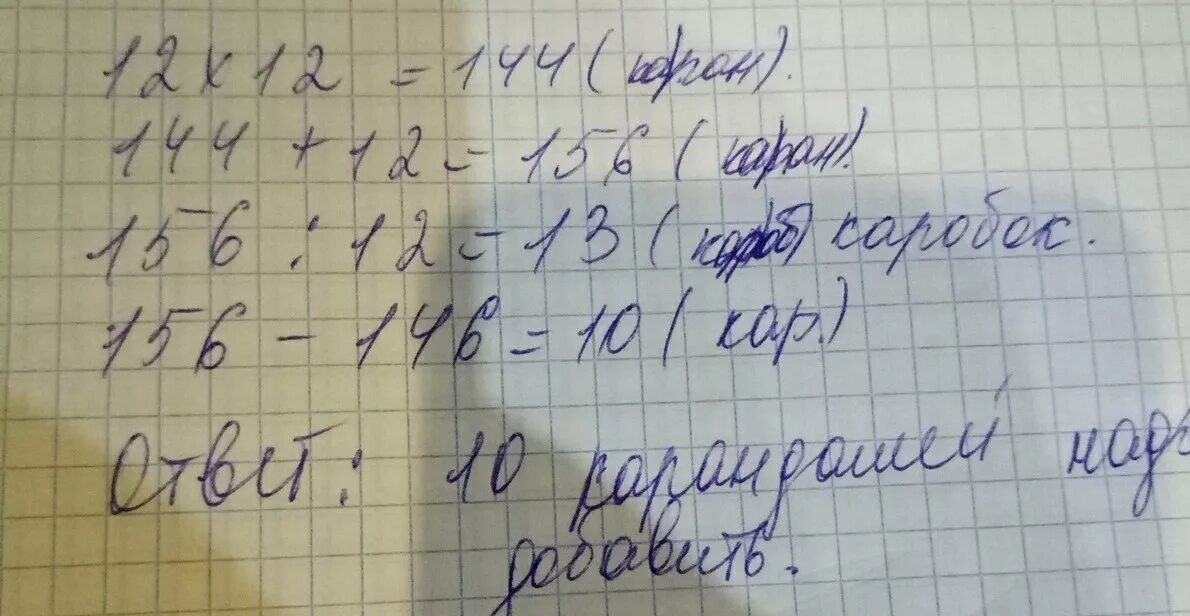 12 x 12 = 144 (каран).
144 + 12 = 156 (каран).
156 : 12 = 13 (короб) каробок.
156 - 146 = 10 (кар.)
Ответ: 10 карандашей надо
добавить.